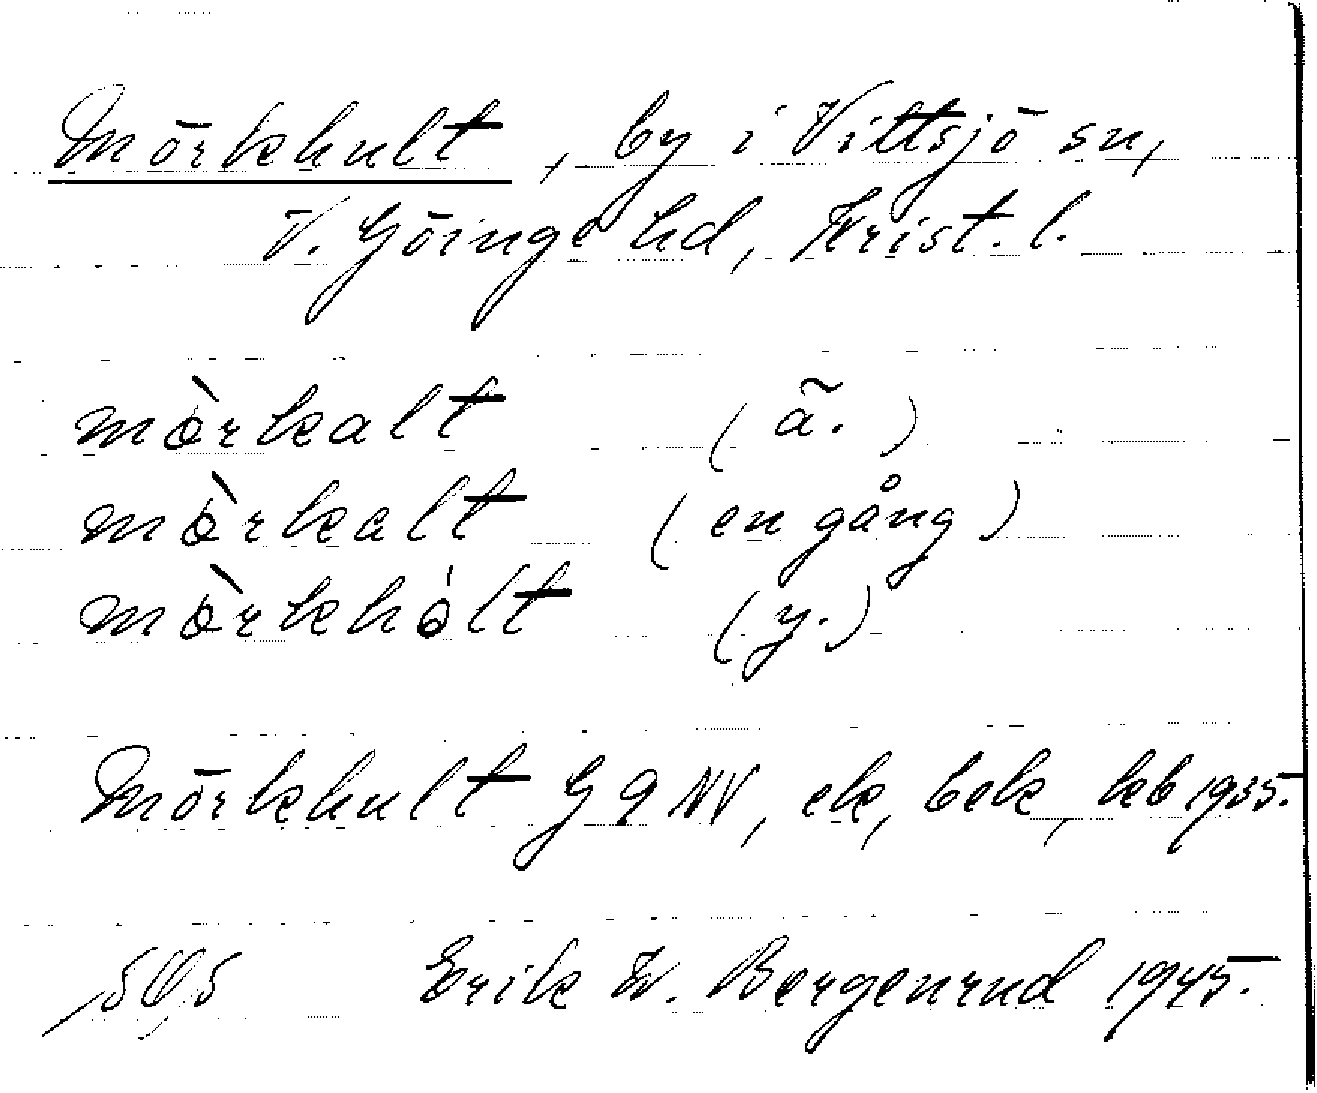 Mörkhult, by i Vittsjö sn,
V. Göinge hd, Krist. l.
mòrkalt (ã.)
mòrkalt (en gång)
mòrkhólt (y.)
Mörkhult G 9 NV, ek, bek, kb 1935.
Erik K. Bergenrud 1945.